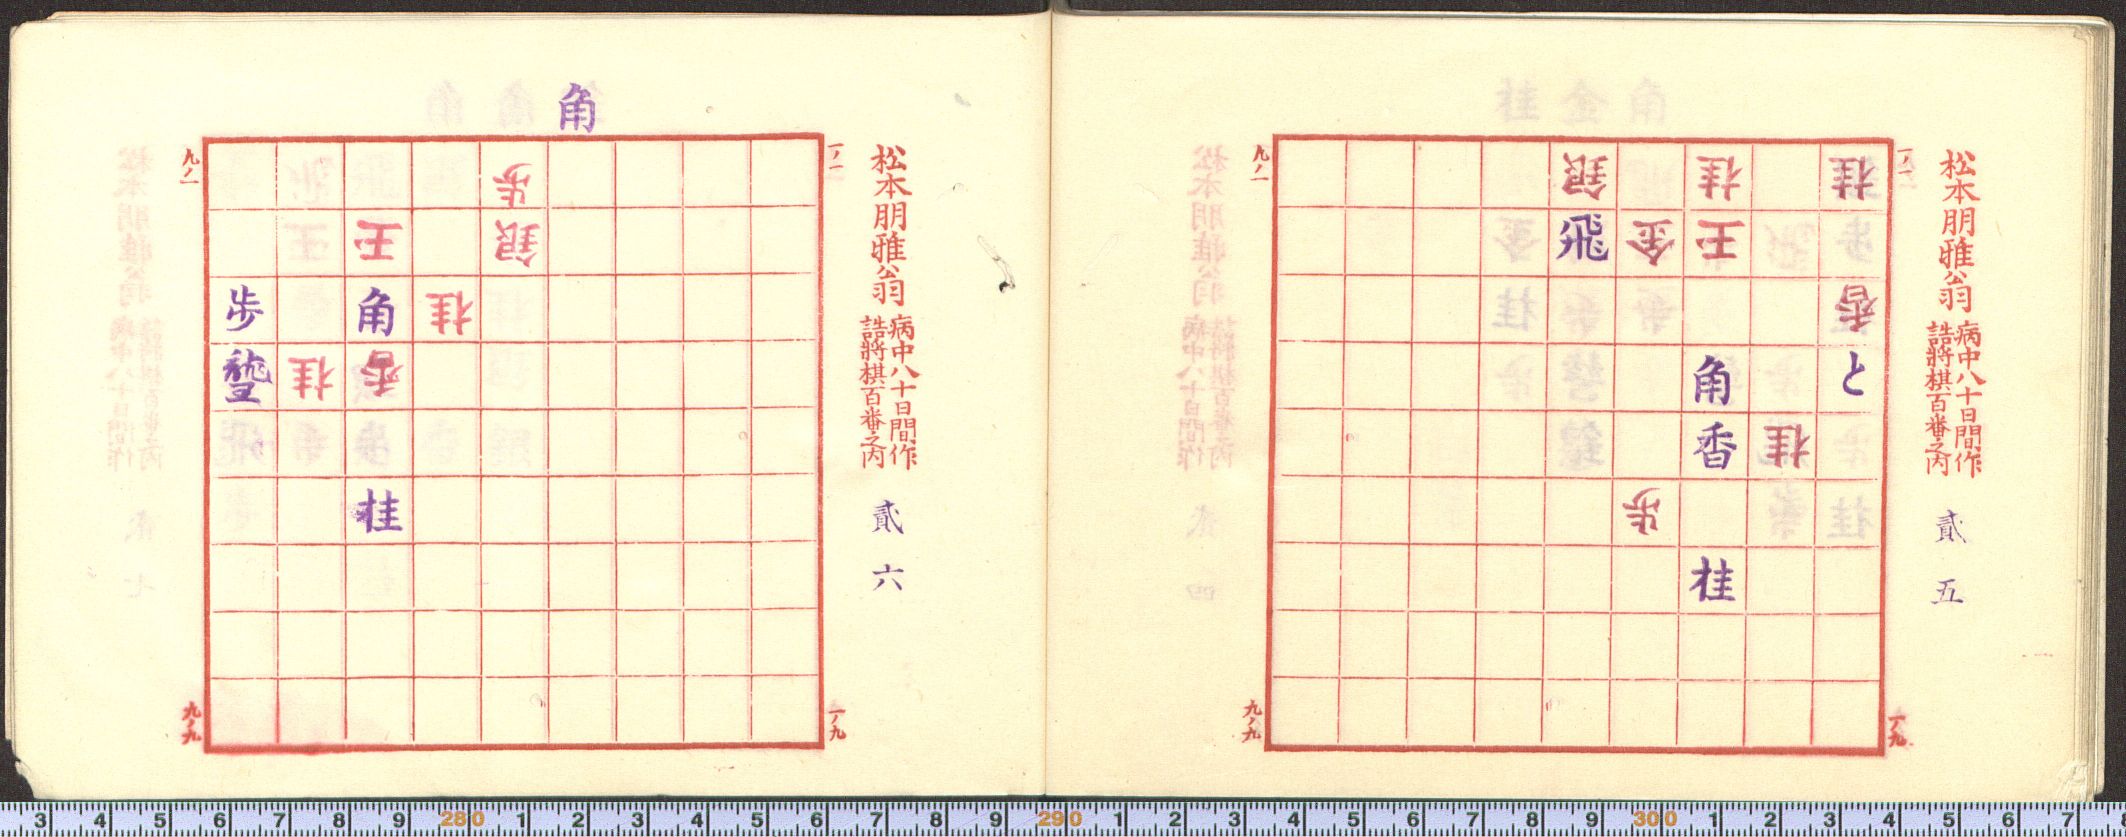 松本朋雅翁
病中八十日間作
詰將棋百番之内
貳五
九ノ一
一ノ一
銀 桂 桂
飛 金 王
香
角 と
香 桂
歩
桂
九ノ九
一ノ九
松本朋雅翁
病中八十日間作
詰將棋百番之内
貳六
角
九ノ一
一ノ一
歩
王 銀
歩 角 桂
桂 香
桂
九ノ九
一ノ九
3 4 5 6 7 8 9 280 1 2 3 4 5 6 7 8 9 290 1 2 3 4 5 6 7 8 9 300 1 2 3 4 5 6 7